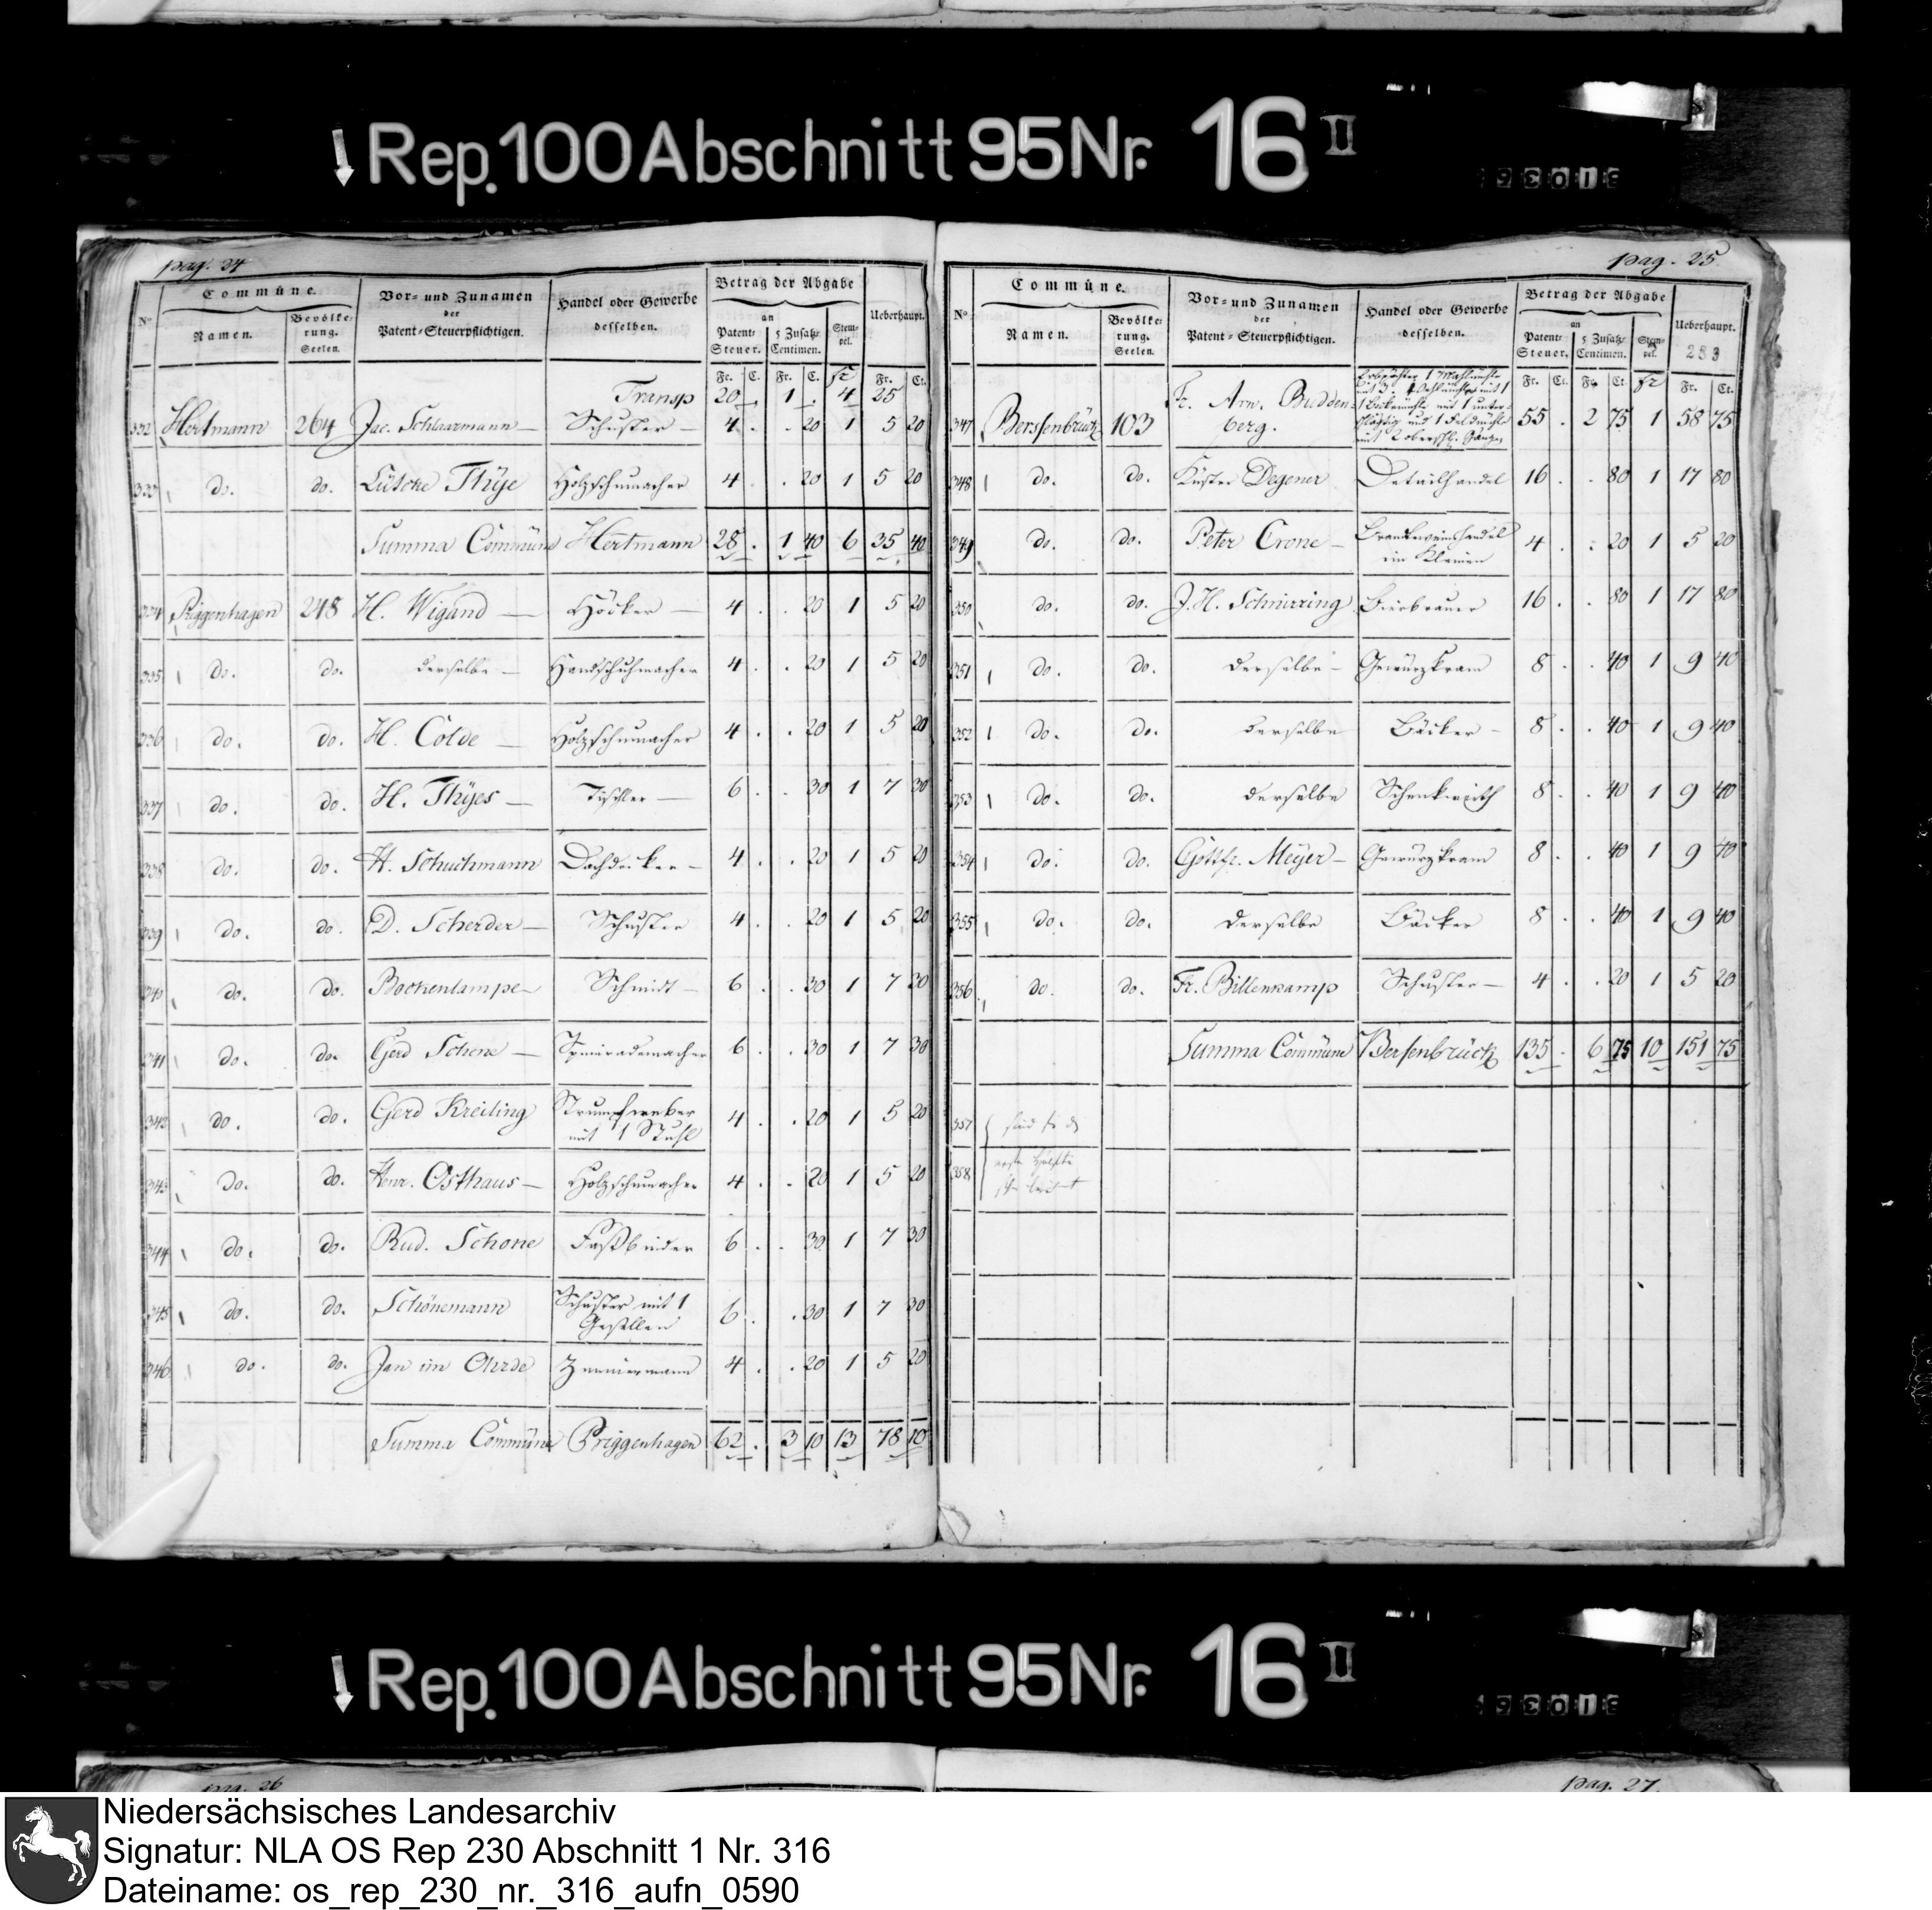 Rep. 100 Abschnitt 95 Nr. 16 II
pag. 24
Commüne.
Betrag der Abgabe
No
Namen.
Bevölke:
rung.
Seelen.
Vor= und Zunamen
der
Patent=Steuerpflichtigen.
Handel oder Gewerbe
desselben.
an
Patent=
Steuer.
5 Zusatz=
Centimen.
Stem=
pel.
Ueberhaupt.
Fr. C. Fr. C. fr Fr. Ct.
Transp 20 . 1 . 4 25
332 Hertmann 264 Jac. Schlaarmann — Schuster — 4 . . 20 1 5 20
333 do. do. Lütcke Thÿe Holzschumacher 4 . . 20 1 5 20
Summa Commüne Hertmann 28 . 1 40 6 35 40
334 Priggenhagen 248 H. Wigand — Höcker — 4 . . 20 1 5 20
335 do. do. derselbe — Handschuhmacher 4 . . 20 1 5 20
336 do. do. H. Colde — Holzschumacher 4 . . 20 1 5 20
337 do. do. H. Thÿes — Tischler — 6 . . 30 1 7 30
338 do. do. H. Schuchmann Dachdecker — 4 . . 20 1 5 20
339 do. do. D. Scherder — Schuster 4 . . 20 1 5 20
340 do. do. Bockenlampe — Schmidt — 6 . . 30 1 7 30
341 do. do. Gerd Schene — Spinrademacher 6 . . 30 1 7 30
342 do. do. Gerd Kreiling Strumpfweber
mit 1 Stuhl 4 . . 20 1 5 20
343 do. do. Henr. Osthaus — Holzschumacher 4 . . 20 1 5 20
344 do. do. Rud. Schone Faßbinder 6 . . 30 1 7 30
345 do. do. Schönemann Schuster mit 1
Gesellen 6 . . 30 1 7 30
346 do. do. Jan im Ohrde Zimmermann 4 . . 20 1 5 20
Summa Commüne Priggenhagen 62 . 3 10 13 78 10
pag. 25
Commüne.
Betrag der Abgabe
No
Namen.
Bevölke:
rung.
Seelen.
Vor= und Zunamen
der
Patent=Steuerpflichtigen.
Handel oder Gewerbe
desselben.
an
Patent=
Steuer.
5 Zusatz=
Centimen.
Stem=
pel.
Ueberhaupt.
283
Fr. Ct. Fr. Ct. fr Fr. Ct.
347 Berssenbrück 103 Fr. Arn. Budden=
berg. 55 . 2 75 1 58 75
348 do. do. Küster Degener Detailhandel 16 . . 80 1 17 80
349 do. do. Peter Crone — Branteweinshandel
im Kleinen 4 . . 20 1 5 20
350 do. do. J. H. Schnirring Bierbrauer 16 . . 80 1 17 80
351 do. do. derselbe — Gewürzkram 8 . . 40 1 9 40
352 do. do. derselbe Bäcker — 8 . . 40 1 9 40
353 do. do. derselbe Schenkwirth 8 . . 40 1 9 40
354 do. do. Gottfr. Meÿer — Gewürzkram 8 . . 40 1 9 40
355 do. do. derselbe Bäcker 8 . . 40 1 9 40
356 do. do. Fr. Billenkamp Schuster — 4 . . 20 1 5 20
Summa Commüne Bersenbrück 135 . 6 75 10 151 75
357
358
Rep. 100 Abschnitt 95 Nr. 16 II
pag. 26
pag. 27.
Niedersächsisches Landesarchiv
Signatur: NLA OS Rep 230 Abschnitt 1 Nr. 316
Dateiname: os_rep_230_nr._316_aufn_0590